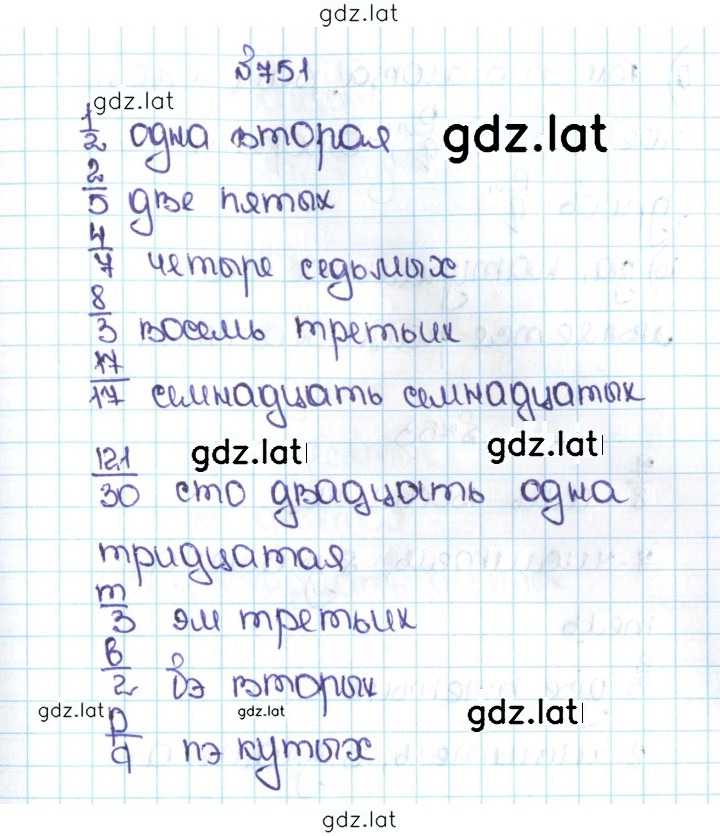 gdz.lat
№751
gdz.lat
1/2 одна вторая gdz.lat
2/5 две пятых
4/7 четыре седьмых
8/3 восемь третьих
17/17 семнадцать семнадцатых
gdz.lat gdz.lat
121/30 сто двадцать одна
тридцатая
m/3 эм третьих
b/2 бэ вторых
gdz.lat gdz.lat gdz.lat
p/q пэ кутых
gdz.lat